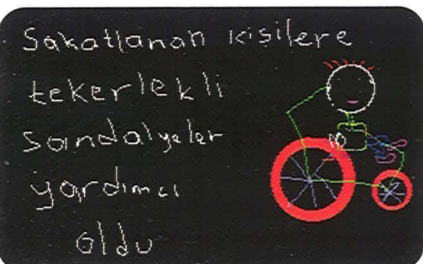 Sakatlanan kişilere
tekerlekli
sandalyeler
yardımcı
oldu